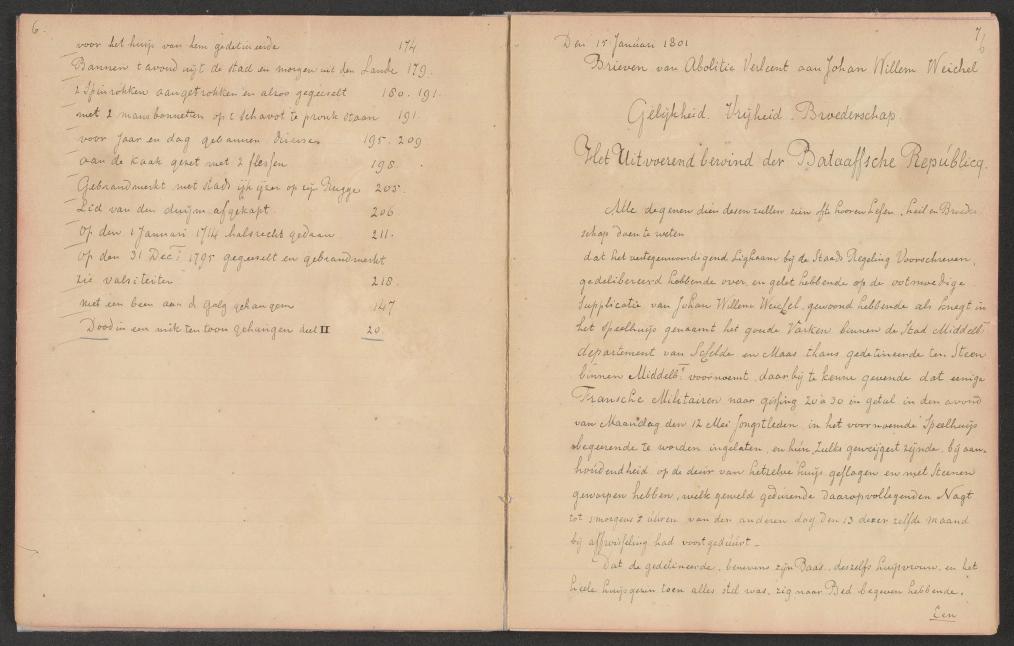 6.
voor het huijs van hem gedetineerde 174
Bannen t avond uijt de stad en morgen uit den Lande 179.
2 Spinrokken aangetrokken en alzoo gegeeselt 180. 191.
met 2 mansbonnetten op t schavot te pronk staan 191.
voor Jaar en dag gebannen. diverses 195. 209
aan de kaak gezet met 2 flessen 198.
Gebrandmerkt met stads ijk ijzer op zijn Rugge 205.
Lid van den duijm afgekapt 206
op den 1 Januari 1714 halsrecht gedaan 211.
op den 31 Decr 1795 gegeeselt en gebrandmerkt
zie valsiteiten 218.
met een been aan d galg gehangen 147
Dood in een mik ten toon gehangen deel II 20.
7/6
Den 15 Januari 1801
Brieven van Abolitie Verleent aan Johan Willem Weichel
Gelijkheid. Vrijheid. Broederschap.
Het Uitvoerend bewind der Bataaffsche Repúblicq.
Alle degenen dien desen zullen zien ofte hooren Lesen, heil en Broeder-
schap doen te weten
dat het vertegenwoordigend Lighaam bij de Staads Regeling Voorschreven,
gedelibereerd hebbende over, en gelet hebbende op de ootmoedige
Supplicatie van Johan Willem Weichel, gewoond hebbende als knegt in
het speelhuijs genaamt het goude Varken binnen de Stad Middelbt
departement van Schelde en Maas thans gedetineerde ten Steen
binnen Middelbt voornoemt, daarbij te kenne gevende dat eenige
Fransche Militairen naar gissing 20 à 30 in getal in den avond
van Maandag den 12 Mei Jongstleden in het voornoemde Speelhuijs
begeerende te worden ingelaten, en hún zulks geweijgert zijnde, bij aan-
houdendheid op de deur van hetzelve huijs geslagen en met Steenen
geworpen hebben, welk geweld gedúrende daaropvollegenden Nagt
tot smorgens úúren van den anderen dag den 13 dezer zelfde maand
bij affwisseling had voortgedúúrt_
Dat de gedetineerde, benevens zijn Baas, deszelfs huijsvrouw, en het
heele huijsgezin toen alles stil was, zig naar Bed begeven hebbende,
Een